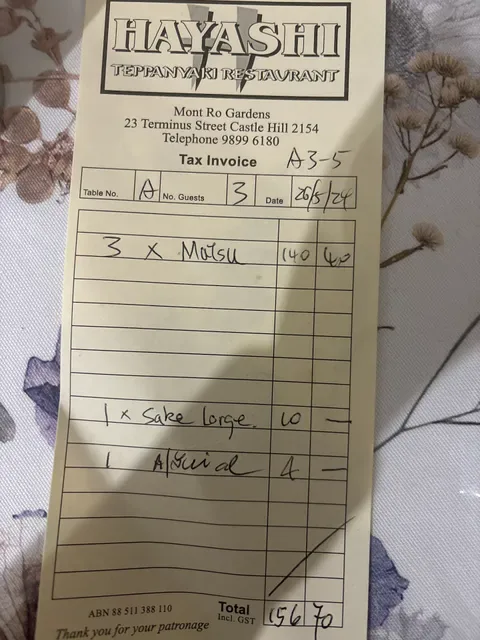 HAYASHI
TEPPANYAKI RESTAURANT
Mont Ro Gardens
23 Terminus Street Castle Hill 2154
Telephone 9899 6180
Tax Invoice A3-5
Table No. A No. Guests 3 Date 26/5/24
3 x Matsu 140 40
1 x Sake Large. 10 —
1 4 —
ABN 88 511 388 110 Total Incl. GST 156 70
Thank you for your patronage